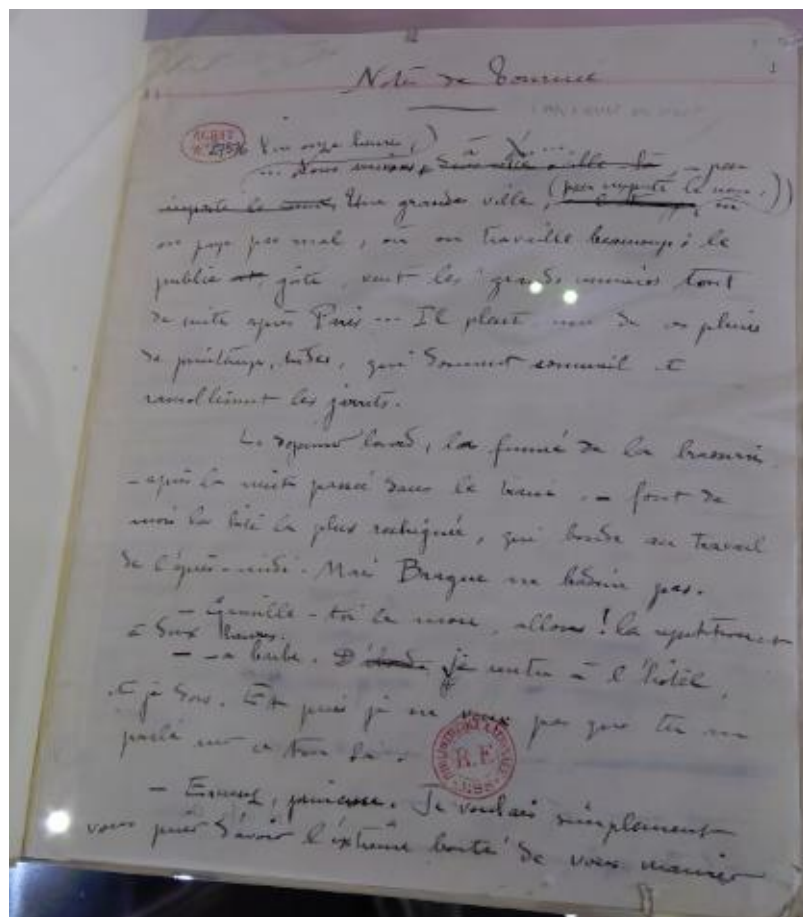 Notes de Tournée
ACQUIT
N° 27576
Vers onze heures,) à X....
... Nous arrivons, dans cette ville-là, — peu
importe le nom. Une grande ville, (peu importe le nom,))
on paye pas mal, où on travaille beaucoup; le
public gâté, veut les grands numéros tout
de suite après Paris ... Il pleut une de ces pluies
de printemps, tièdes, qui donnent sommeil et
ramollissent les jarrets.
Le déjeuner lourd, la fumée de la brasserie
— après la nuit passée dans le train, — font de
moi la bête la plus rechignée, qui boude au travail
de l'après-midi. Mais Brague ne badine pas.
— Grouille-toi le mou, allons! la répétition est
à deux heures.
— La barbe. D'abord je rentre à l'hôtel,
et je dors. Et puis je ne veux pas que tu me
parle sur ce ton là.
BIBLIOTHÈQUE NATIONALE
R.F.
MSS
— Excusez, princesse. Je voulais simplement
vous prier d'avoir l'extrême bonté de vous manier